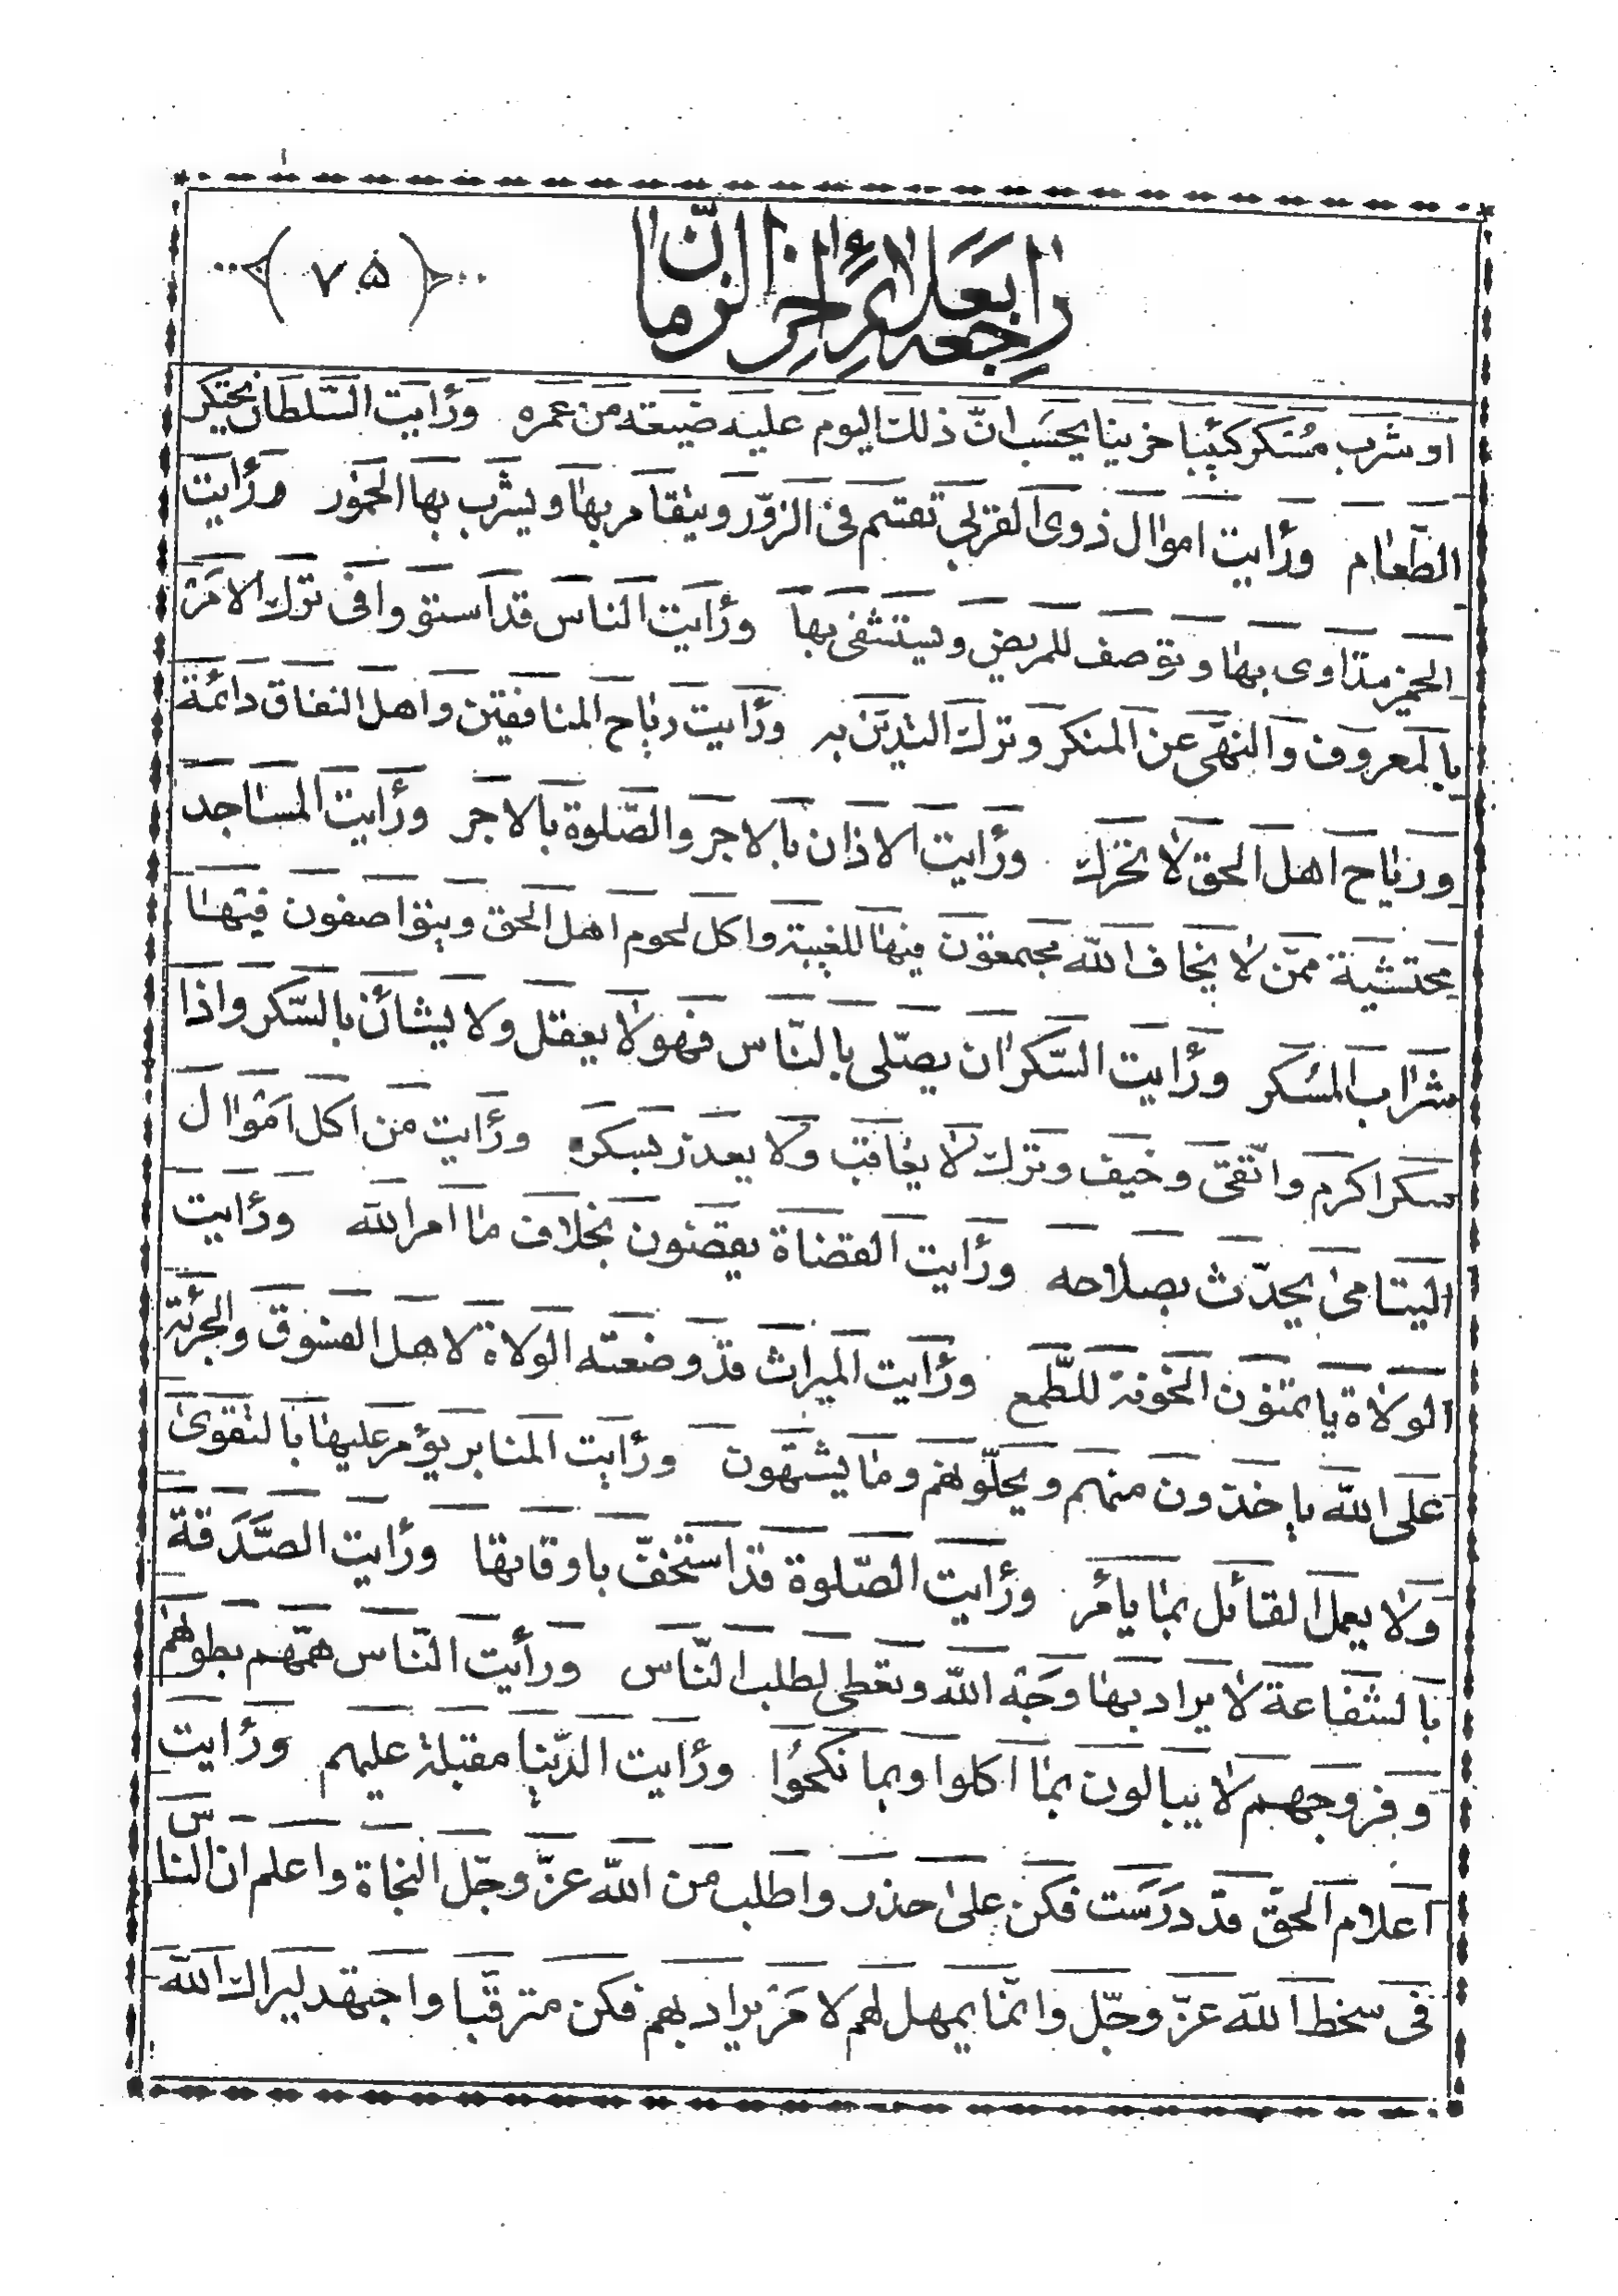 راجعه بعلائم اخر الزمان
(٧٥)
او شرب مسكر كئيبا حزينا يحسب انّ ذلك اليوم عليه ضيعة من عمره ورأيت السّلطان يحتكر
الطّعام ورأيت اموال ذوى القربى تقتسم فى الزّور ويتقامر بها ويشرب بها الخمور ورأيت
الخمر يتداوى بها وتوصف للمريض ويستشفى بها ورأيت الناس قد استووا فى ترك الامر
بالمعروف والنهى عن المنكر وترك التديّن به ورأيت رياح المنافقين واهل النفاق دائمة
ورياح اهل الحق لا تحرك ورأيت الاذان بالاجر والصّلوة بالاجر ورأيت المساجد
محتشية ممّن لا يخاف الله مجتمعون فيها للغيبة واكل لحوم اهل الحق ويتواصفون فيها
شراب المسكر ورأيت السّكران يصلّى بالنّاس فهو لا يعقل ولا يشأن بالسّكر واذا
سكر اكرم واتّقى وخيف وترك لا يعاقب ولا يعذر بسكره ورأيت من اكل اموال
اليتامى يحدّث بصلاحه ورأيت القضاة يقضون بخلاف ما امر الله ورأيت
الولاة يا تمنون الخونة للطّمع ورأيت الميراث قد وضعته الولاة لاهل الفسوق والجرئة
على الله يأخذون منهم ويخلّوهم وما يشتهون ورأيت المنابر يؤمر عليها بالتقوى
ولا يعمل القائل بما يأمر ورأيت الصّلوة قد استخفّ باوقاتها ورأيت الصّدقة
بالشفاعة لا يراد بها وجه الله وتعطى لطلب النّاس ورأيت النّاس همّهم بطونهم
وفروجهم لا يبالون بما اكلوا وبما نكحوا ورأيت الدّنيا مقبلة عليهم ورأيت
اعلام الحقّ قد درست فكن على حذر واطلب من الله عزّ وجلّ النجاة واعلم ان الناس
فى سخط الله عزّ وجلّ وانّما يمهلهم لامر يراد بهم فكن مترقّبا واجتهد ليراك الله